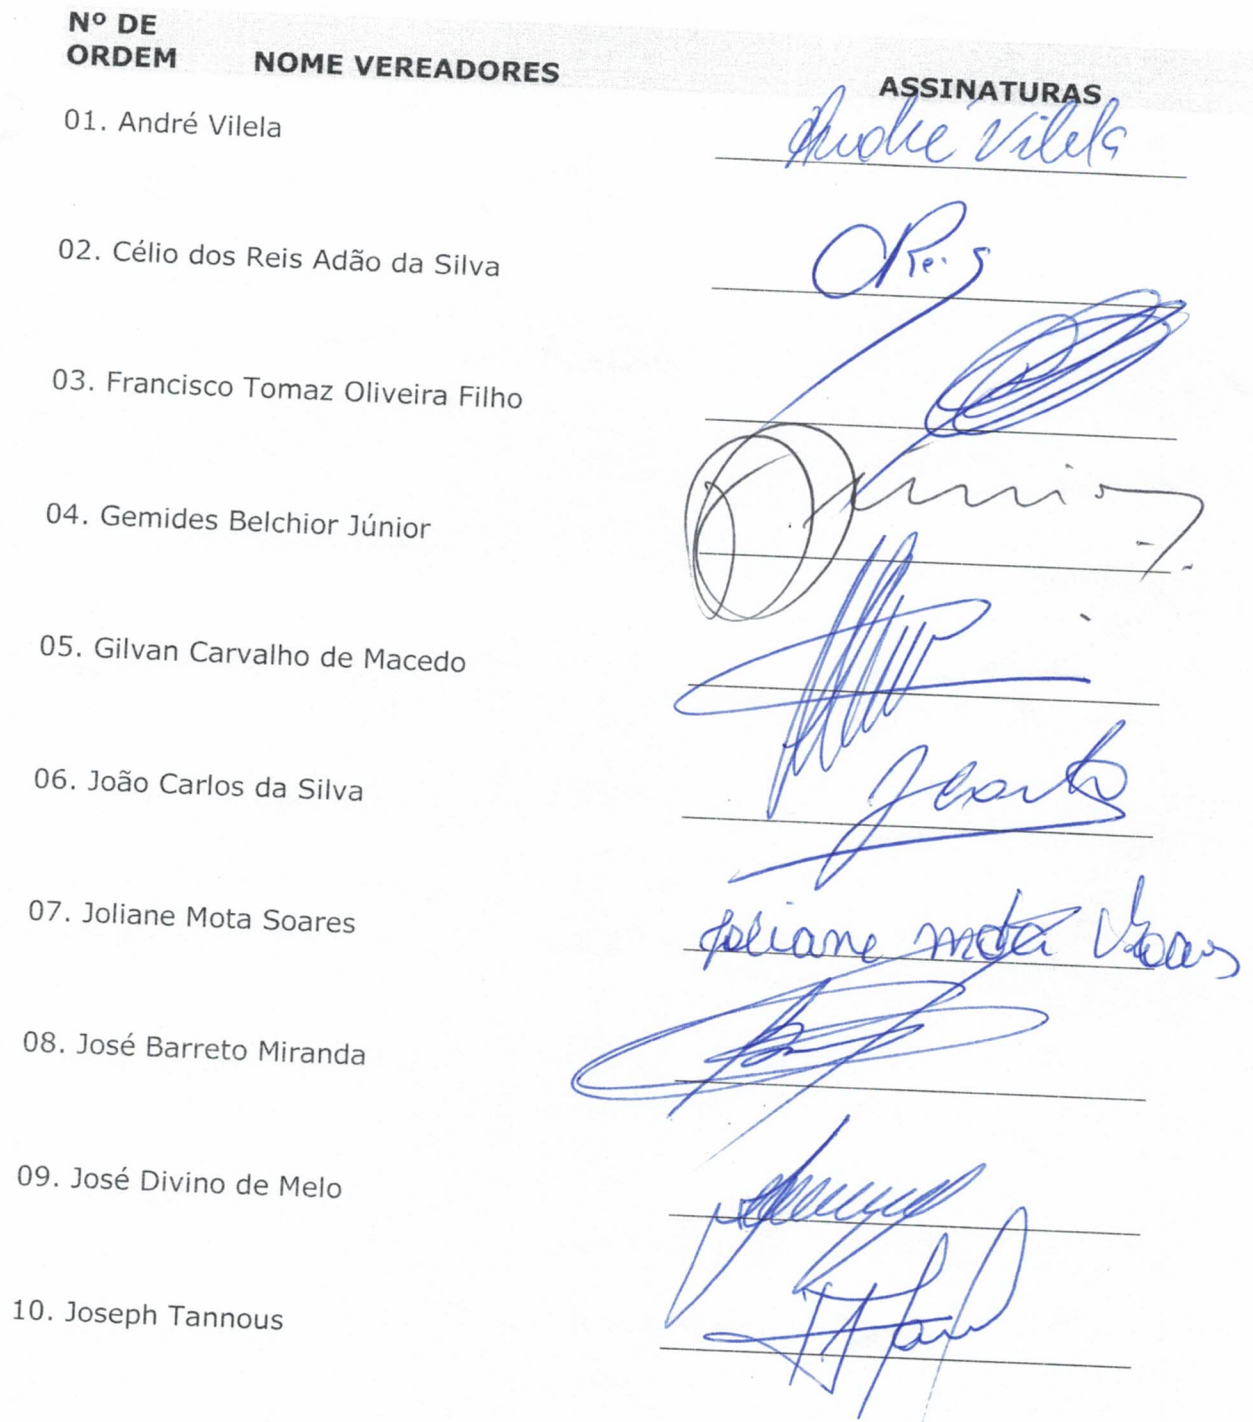 Nº DE
ORDEM NOME VEREADORES ASSINATURAS
01. André Vilela André Vilela
02. Célio dos Reis Adão da Silva CReis
03. Francisco Tomaz Oliveira Filho
04. Gemides Belchior Júnior Júnior
05. Gilvan Carvalho de Macedo
06. João Carlos da Silva
07. Joliane Mota Soares Joliane Mota Soares
08. José Barreto Miranda
09. José Divino de Melo
10. Joseph Tannous